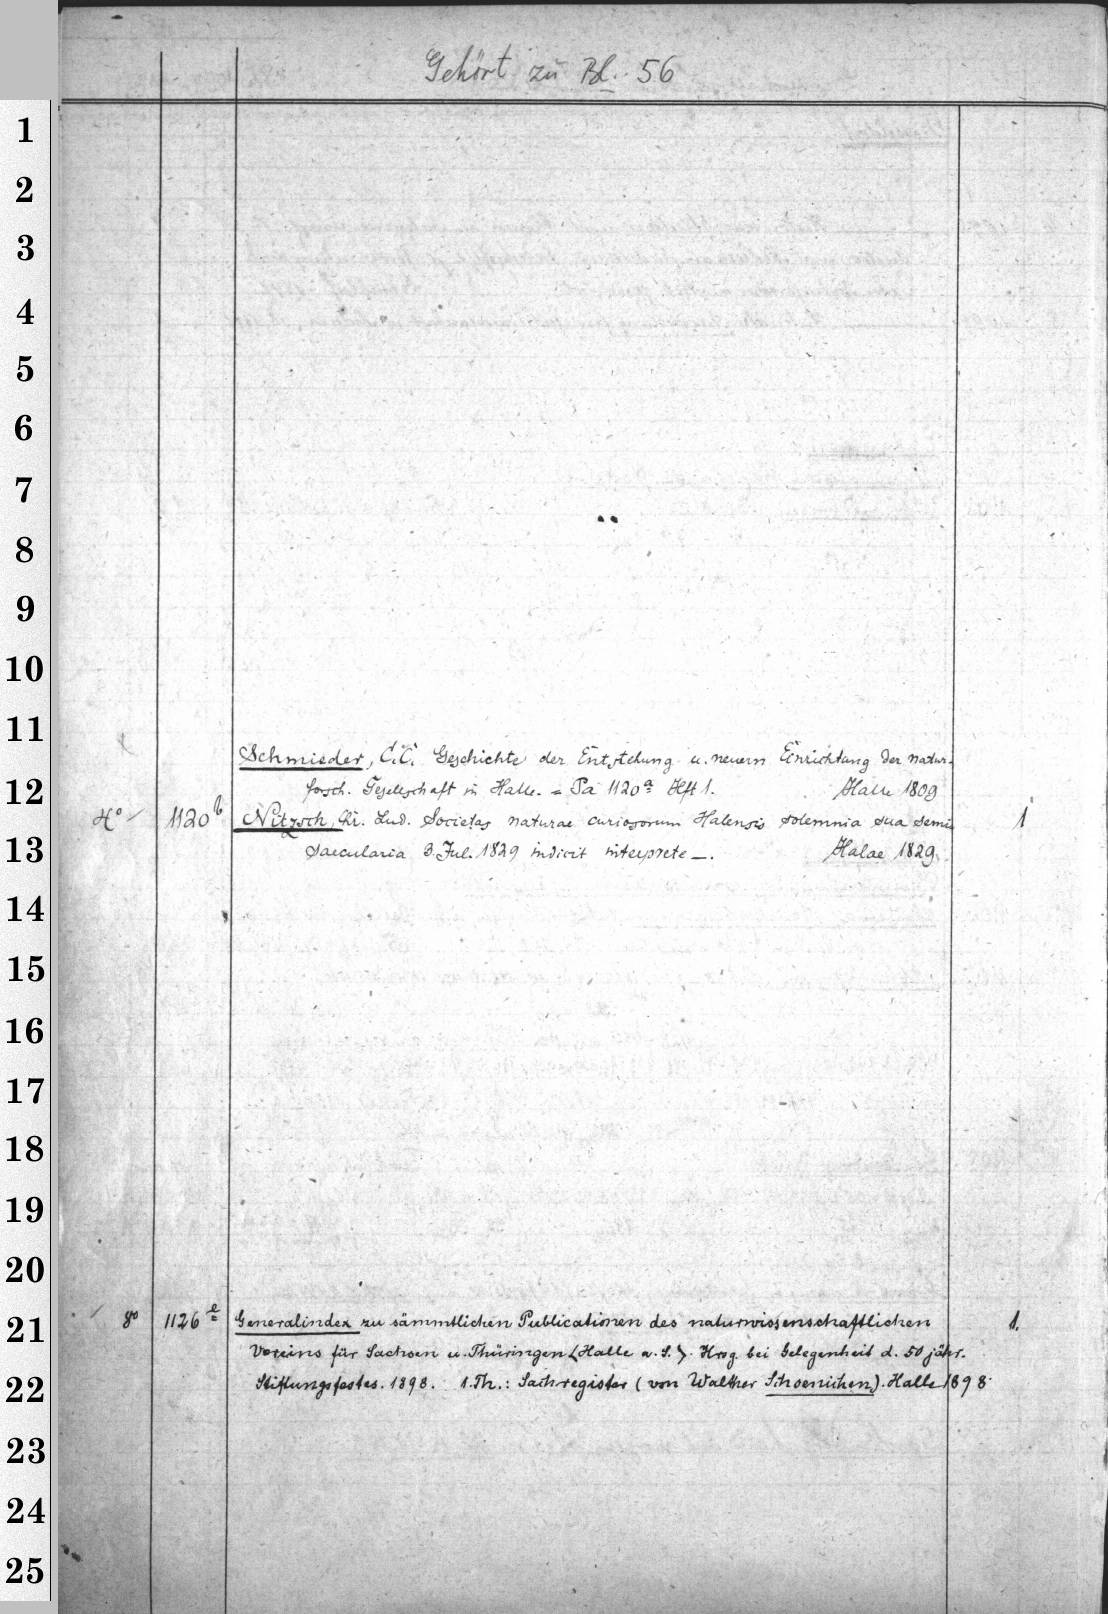 Gehört zu Bl. 56
1
2
3
4
5
6
7
8
9
10
11
Schmieder, C.C. Geschichte der Entstehung u. neuern Einrichtung der natur-
12
forsch. Gesellschaft in Halle. = Pa 1120a Hft 1. Halle 1809
4° 1120b Nitzsch, Chr. Lud. Societas naturae curiosorum Halensis solemnia sua semi 1
13
saecularia 3. Jul. 1829 indicit interprete —. Halae 1829.
14
15
16
17
18
19
20
21
8° 1126e Generalindex zu sämmtlichen Publicationen des naturwissenschaftlichen 1.
Vereins für Sachsen u. Thüringen (Halle a. S.). Hrsg. bei Gelegenheit d. 50 jähr.
22
Stiftungsfestes. 1898. 1. Th.: Sachregister (von Walther Schoenichen). Halle 1898.
23
24
25